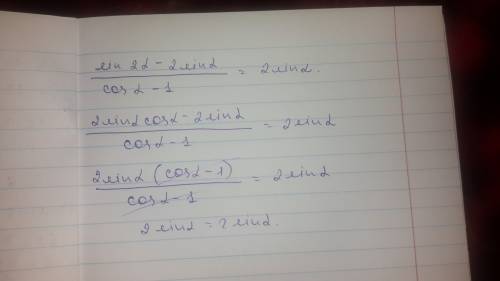 (sin 2α - 2sinα) / (cos α - 1) = 2sinα.
(2sinα cosα - 2sinα) / (cosα - 1) = 2sinα
(2sinα (cosα - 1)) / (cosα - 1) = 2sinα
2sinα = 2sinα.